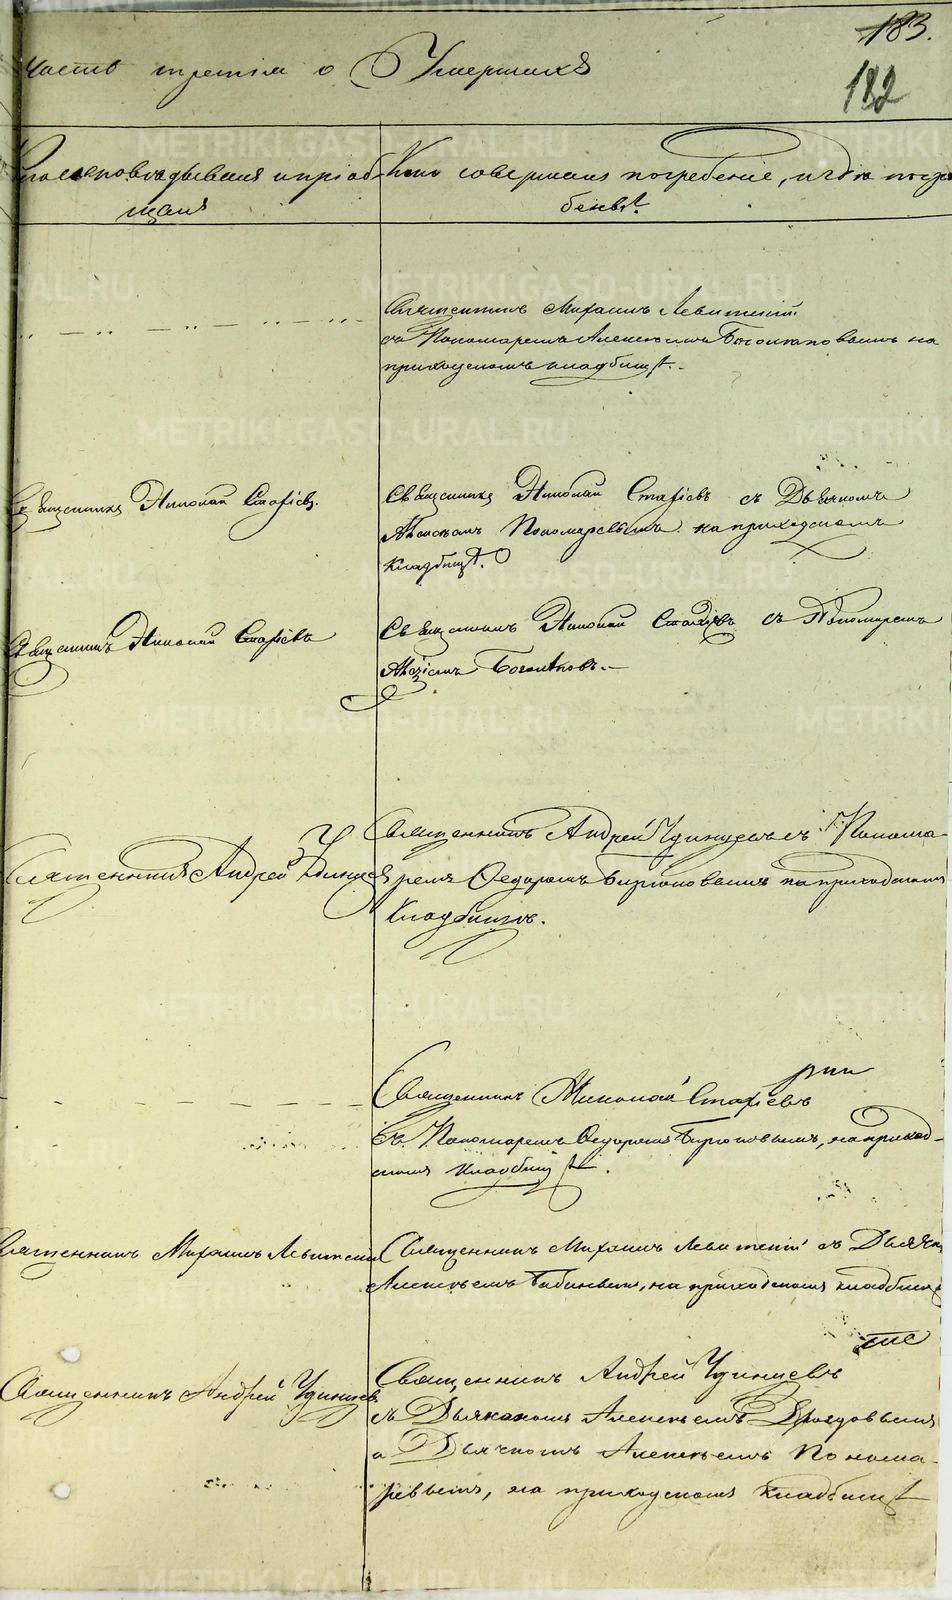 183.
182
Часть третія о Умершихъ
Кто исповѣдывалъ и пріоб-
щалъ
Кто совершалъ погребеніе, и гдѣ погре
бенъ.
Священникъ Михаилъ Левитскій
съ Пономаремъ Алексѣемъ на
приходскомъ кладбищѣ.
Священникъ Николай Стафіевъ.
Священникъ Николай Стафіевъ съ Дьячкомъ
Пономаревымъ на приходскомъ
кладбищѣ.
Священникъ Николай Стафіевъ
Священникъ Николай Стафіевъ съ Пономаремъ
Священникъ Андрей Удинцев
Священникъ Андрей Удинцевъ съ Понома-
ремъ Ѳедоромъ Бирюковымъ на приходскомъ
кладбищѣ.
Священникъ Николай Стафіевъ
съ Пономаремъ Ѳедоромъ Бирюковымъ, на приход-
скомъ кладбищѣ.
Священникъ Михаилъ Левитскій
Священникъ Михаилъ Левитскій съ Дьячк
Алексѣемъ на приходскомъ кладбищѣ
Священникъ Андрей Удинцев
Священникъ Андрей Удинцевъ
съ Дьякономъ Алексѣемъ Дроздовымъ
и Дьячкомъ Алексѣемъ Понома-
ревымъ, на приходскомъ кладбищѣ
METRIKI.GASO-URAL.RU